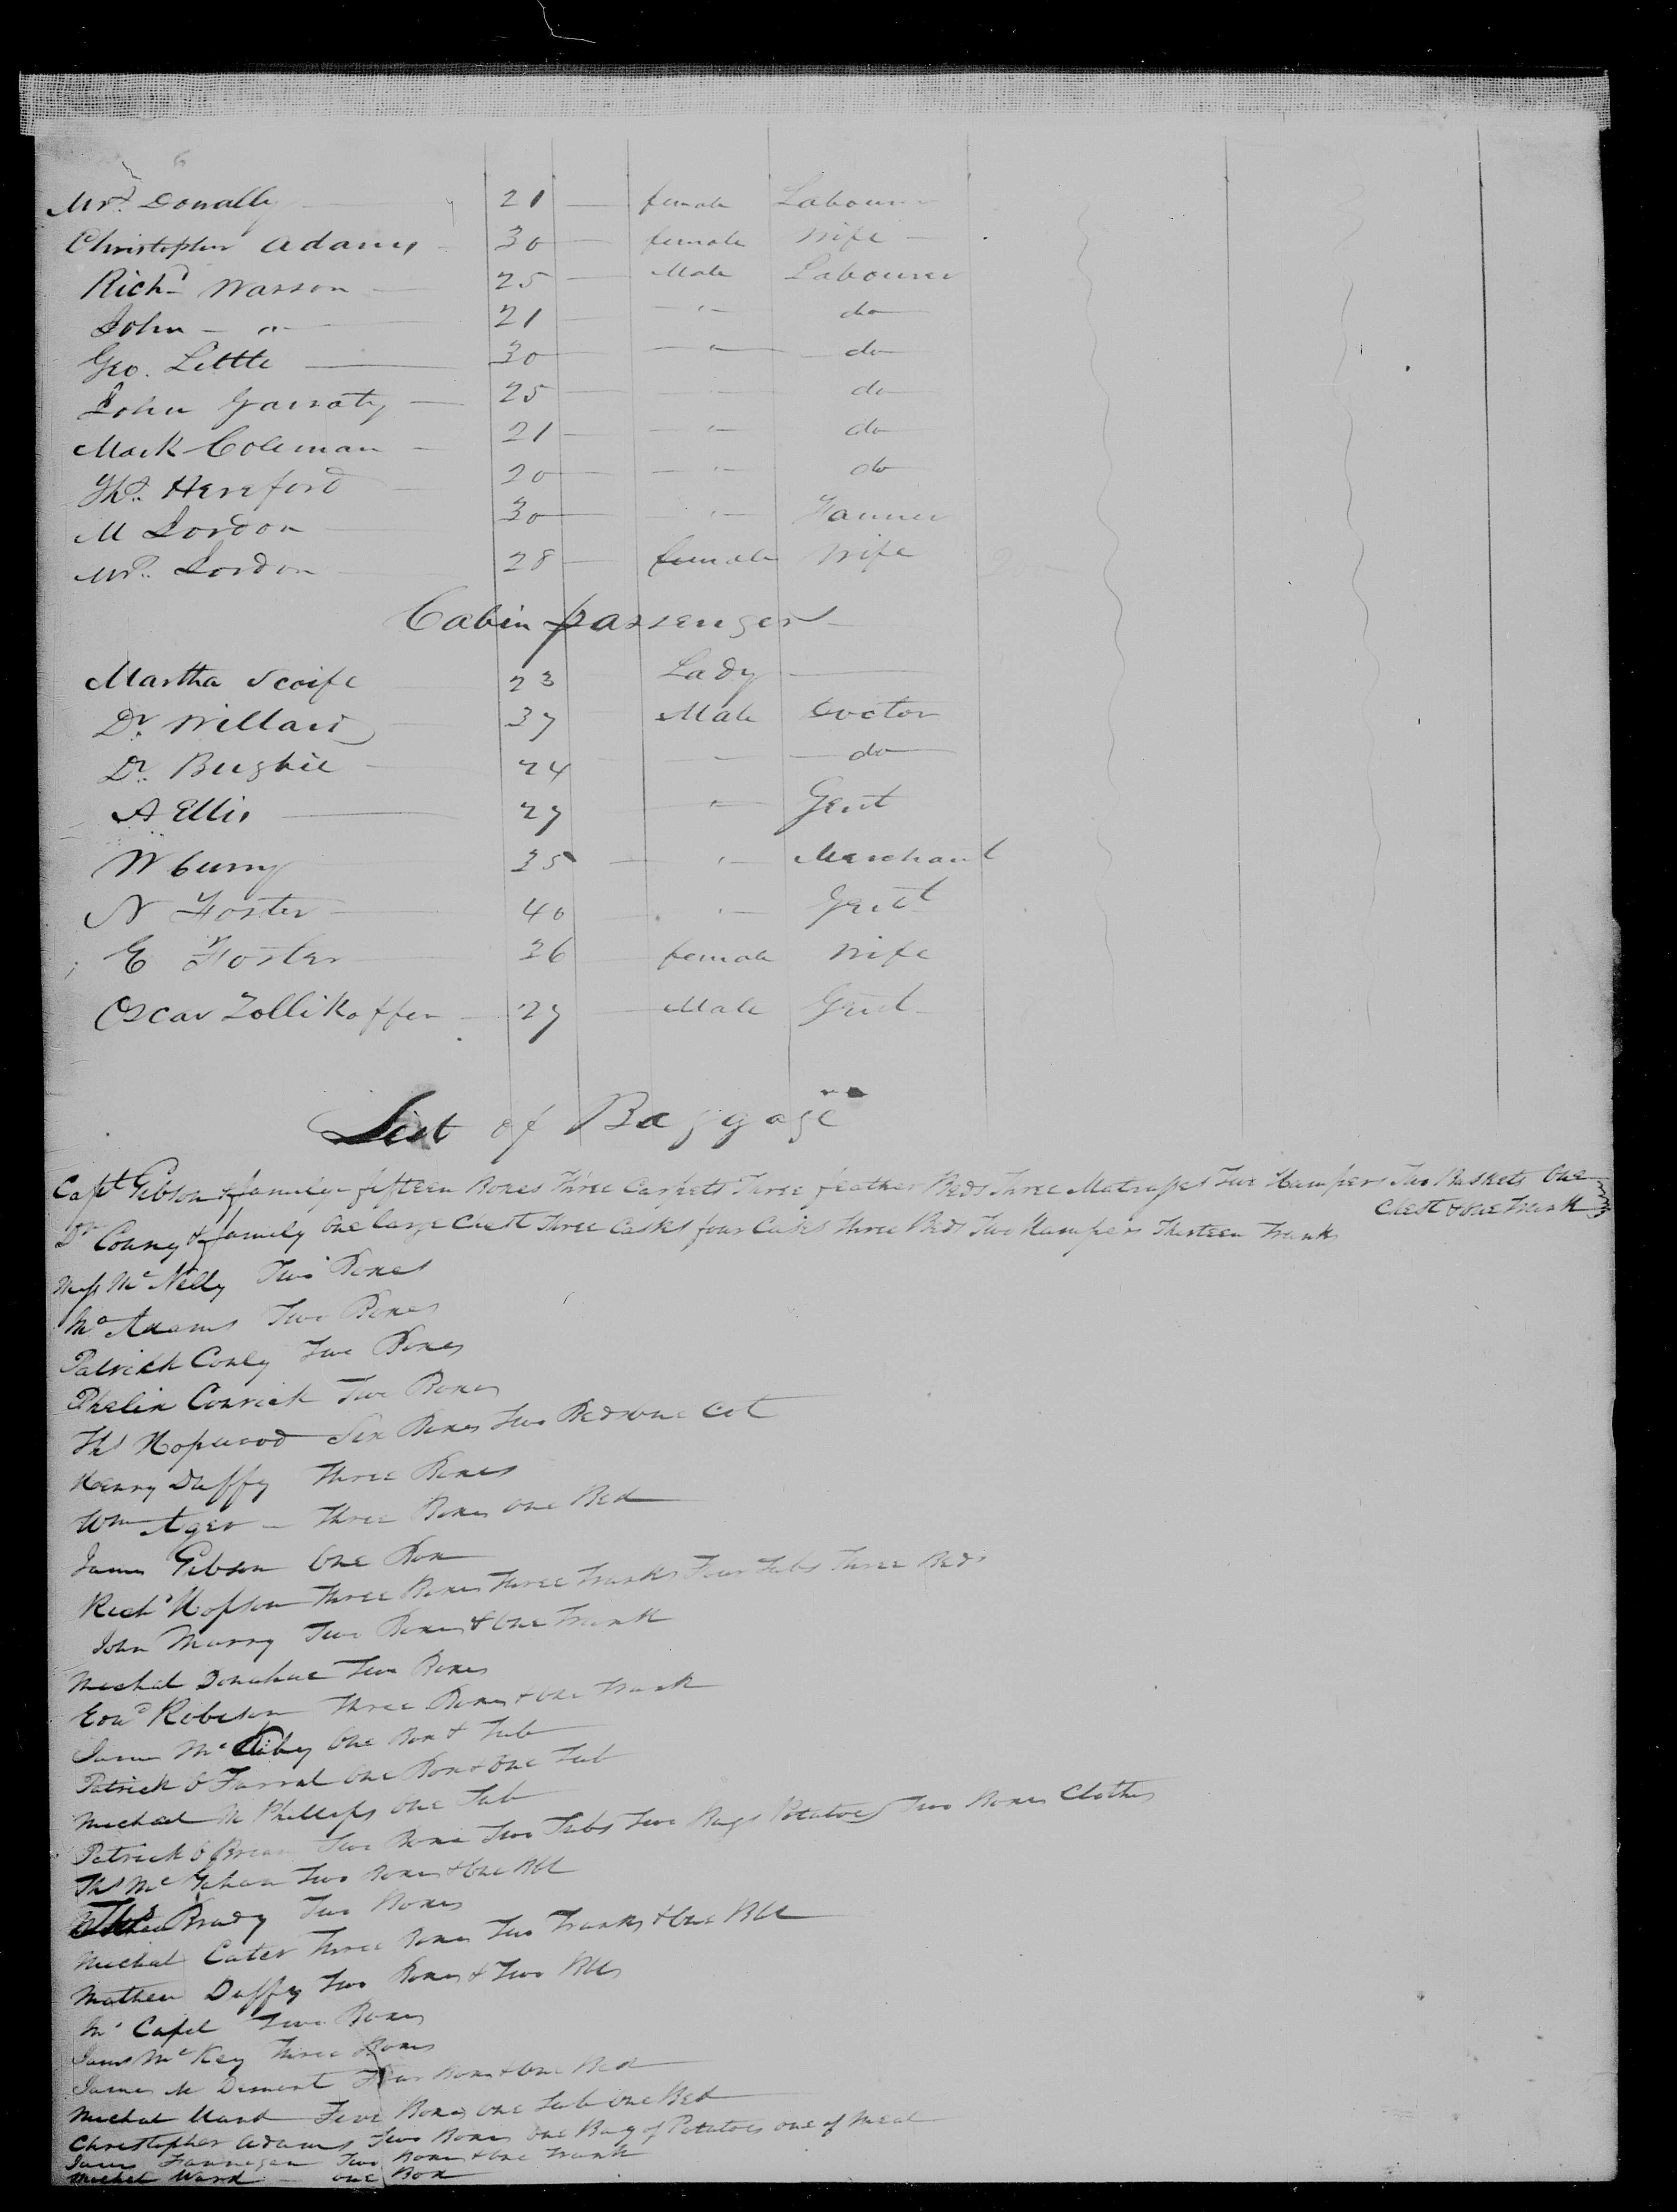 Mrs Donally 21 female Labourer
Christopher Adams 30 female Wife
Richd Wasson 25 Male Labourer
John " 21 " do
Geo. Little 30 " do
John Garraty 25 " do
Mark Coleman 21 " do
Ths. Hereford 20 " do
M Jordon 30 " Farmer
Mrs. Jordon 28 female Wife
Cabin passengers
Martha Scoife 23 Lady
Dr. Willard 37 Male Doctor
Dr. 24 " do
A Ellis 27 " Gent
W Curry 35 " Merchant
N Foster 40 " Gent
E Foster 36 female Wife
Oscar Zollikoffer 27 Male Gent
List of Baggage
Capt Gibson & family fifteen Boxes Three Carpets Three feather Beds Three Matrasses Two Hampers Two Baskets One
Chest & One Trunk
Dr & family One large Chest Three Casks four Cases Three Beds Two Hampers Thirteen Trunks
Miss Mc Nelly Two Boxes
Adams Two Boxes
Patrick Conly Two Boxes
Phelix Two Boxes
Ths Hopwood Six Boxes Two Beds one Cot
Henry Duffy Three Boxes
Wm Ager Three Boxes One Bed
James Gibson One Box
Richd Hopson Three Boxes Three Trunks Four Tubs Three Beds
John Murry Two Boxes & One Trunk
Michal Donahue Two Boxes
Edwd Robeson Three Boxes & One Trunk
James Mc One Box & Tub
Patrick O Farral One Box & One Tub
Michael M Phillips One Tub
Patrick O Brian Two Boxes Two Tubs Two Bags Potatoes Two Boxes Clothes
Ths Mc Gahan Two Boxes & One Bbl
Brady Two Boxes
Michal Cater Three Boxes Two Trunks & One Bbl
Mathew Duffy Two Boxes & Two Bbls
Capel Two Boxes
James Mc Key Three Boxes
James M Dement Four Boxes & One Bed
Michal Ward Five Boxes One Tub One Bed
Christopher Adams Two Boxes One Bag of Potatoes one of Meal
James Flannegan Two Boxes & One Trunk
Michel Ward one Box